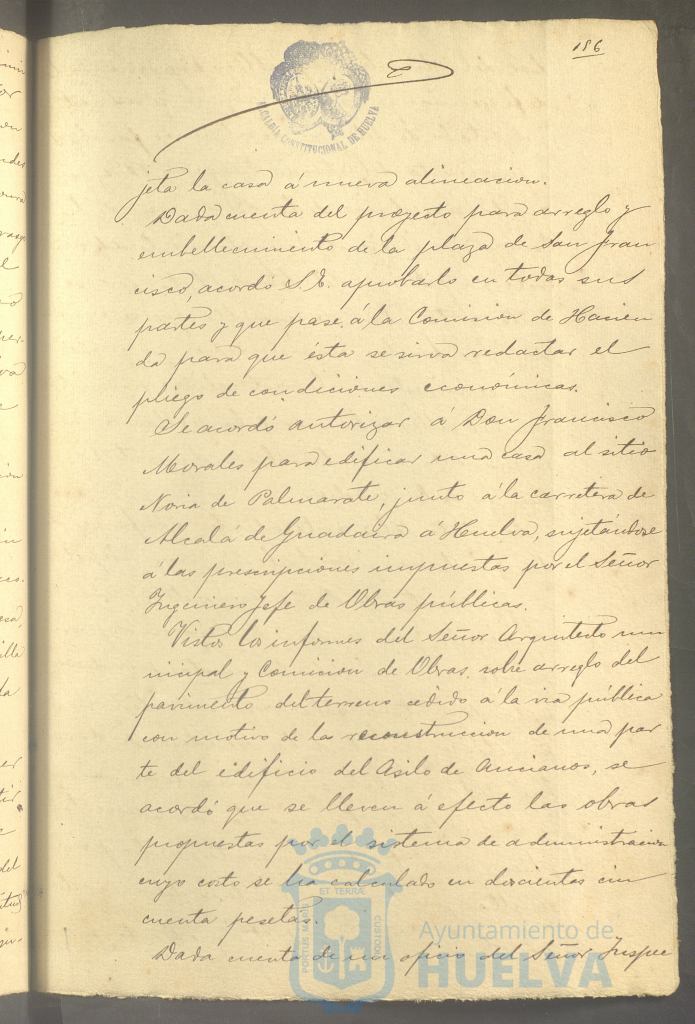 186
ALCALDIA CONSTITUCIONAL DE HUELVA
jeta la casa á nueva alineacion.
Dada cuenta del proyecto para arreglo y
embellecimiento de la plaza de San Fran
cisco, acordó S. E. aprobarlo en todas sus
partes y que pase á la Comision de Hacien
da para que ésta se sirva redactar el
pliego de condiciones económicas.
Se acordó autorizar á Don Francisco
Morales para edificar una casa al sitio
Noria de Palmarate, junto á la carretera de
Alcalá de Guadaira á Huelva, sujetándose
á las prescripciones impuestas por el Señor
Ingeniero Jefe de Obras públicas.
Vistos los informes del Señor Arquitecto mu
nicipal y Comision de Obras, sobre arreglo del
pavimento del terreno cedido á la via pública
con motivo de la reconstruccion de una par
te del edificio del Asilo de Ancianos, se
acordó que se lleven á efecto las obras
propuestas por el sistema de administracion
cuyo costo se ha calculado en doscientas cin
cuenta pesetas.
Dada cuenta de un oficio del Señor Inspec
PORTUS MARIS ET TERRÆ CUSTODIA
Ayuntamiento de
HUELVA